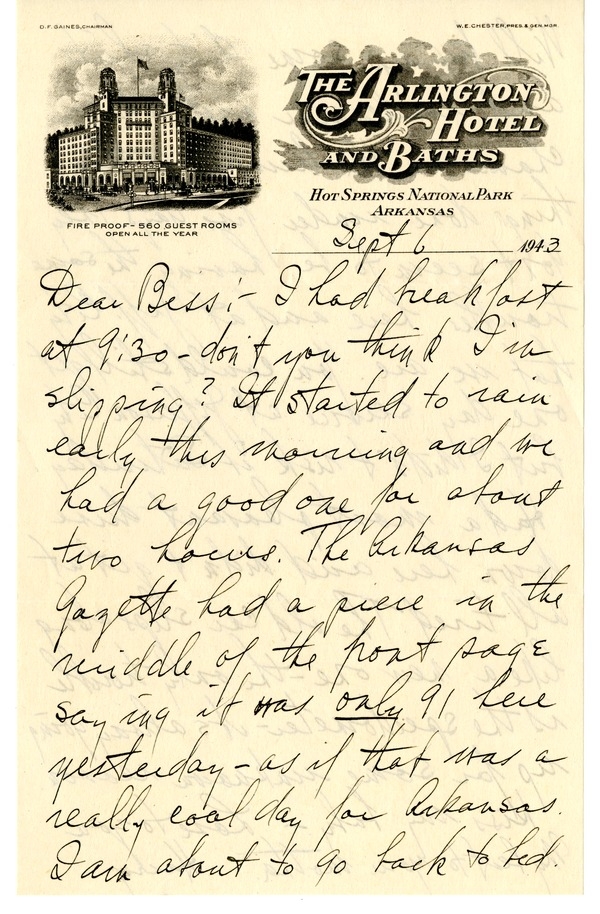 D.F. GAINES, CHAIRMAN
W.E. CHESTER, PRES. & GEN. MGR.
THE ARLINGTON
HOTEL
AND BATHS
HOT SPRINGS NATIONAL PARK
ARKANSAS
FIRE PROOF - 560 GUEST ROOMS
OPEN ALL THE YEAR
Sept 6 1943
Dear Bess:- I had breakfast
at 9:30 - don't you think I'm
slipping? It started to rain
early this morning and we
had a good one for about
two hours. The Arkansas
Gazette had a piece in the
middle of the front page
saying it was only 91 here
yesterday - as if that was a
really cool day for Arkansas.
I am about to go back to bed.